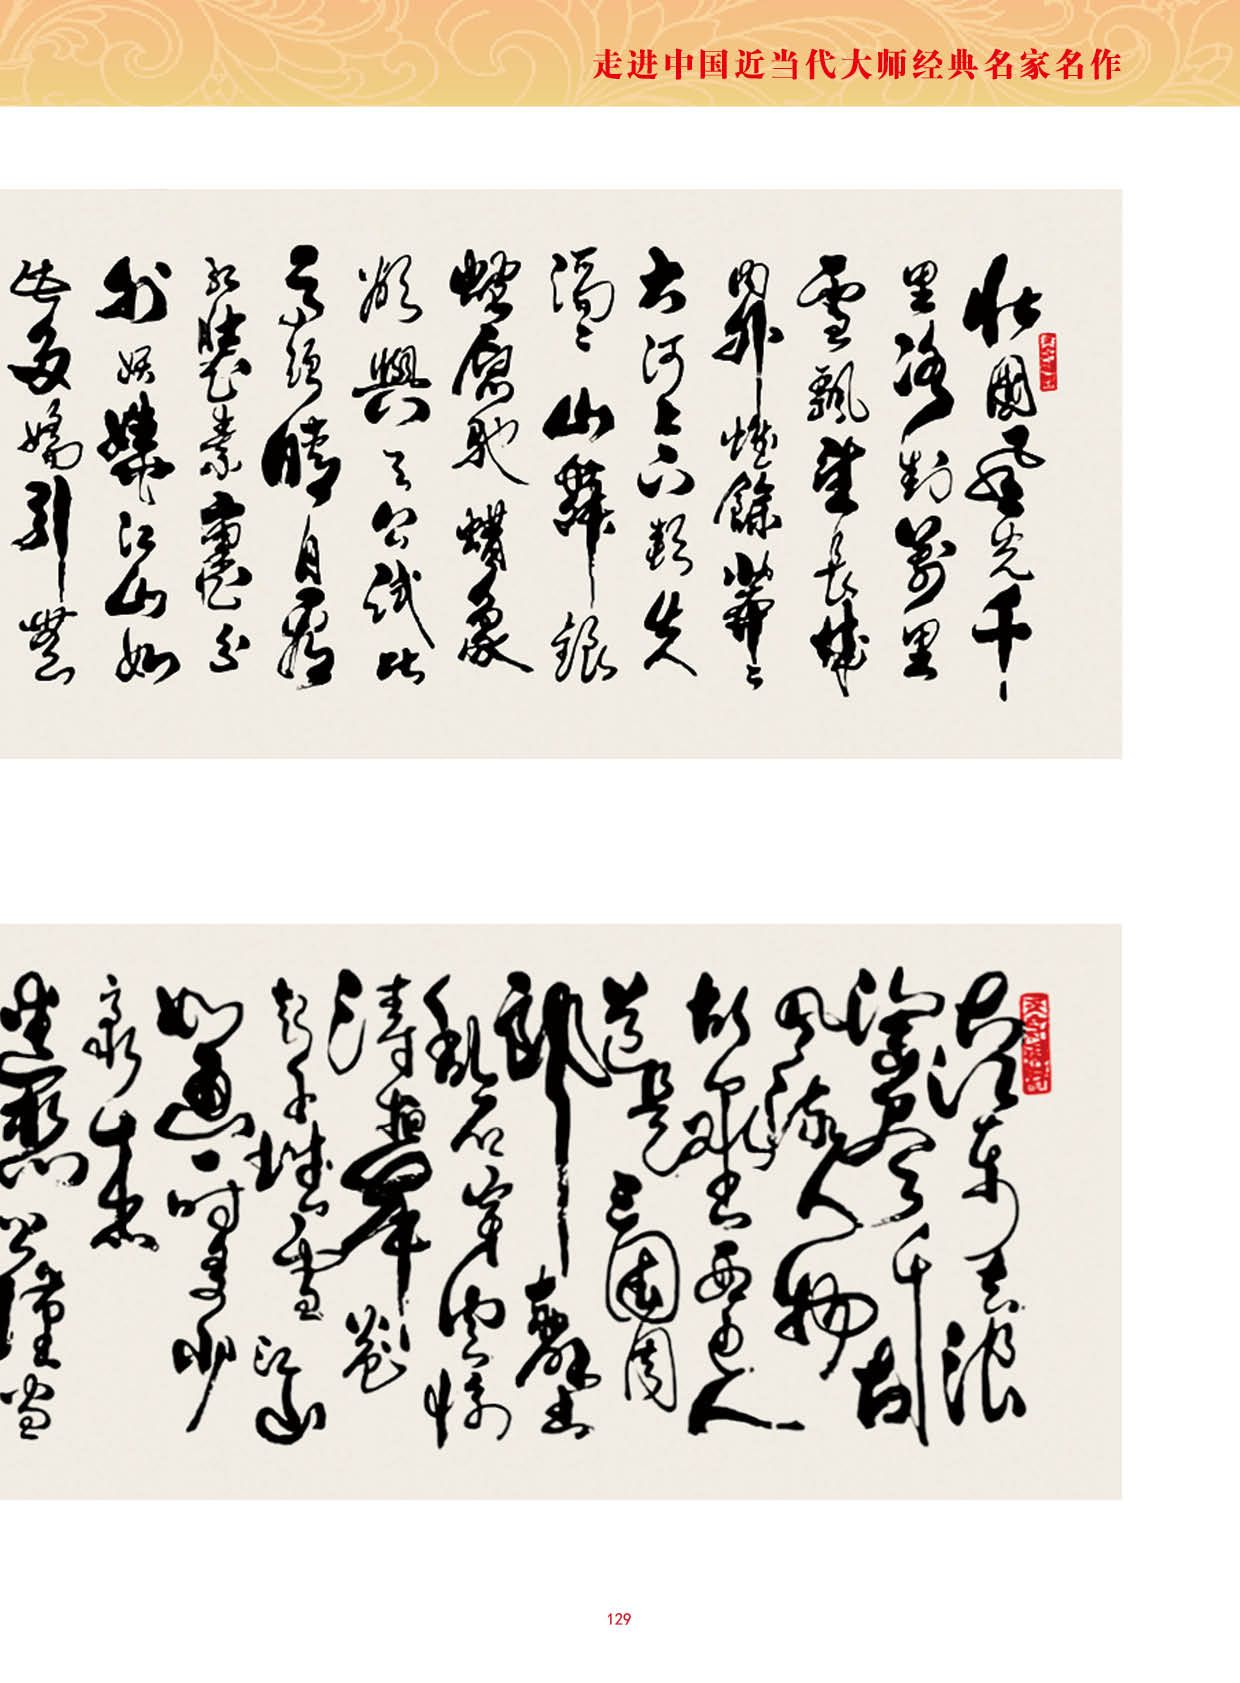 走进中国近当代大师经典名家名作
北国风光千
里冰封万里
雪飘望长城
内外惟馀莽々
大河上下顿失
滔々山舞银
蛇原驰蜡象
欲与天公试比
高须晴日看
红装素裹分
外妖娆江山如
此多娇引无
大江东去浪
淘尽千古
风流人物
故垒西边人
道是三国周
郎赤壁
乱石穿空惊
涛拍岸卷
起千堆雪江山
如画一时多少
豪杰
遥想公瑾当
129